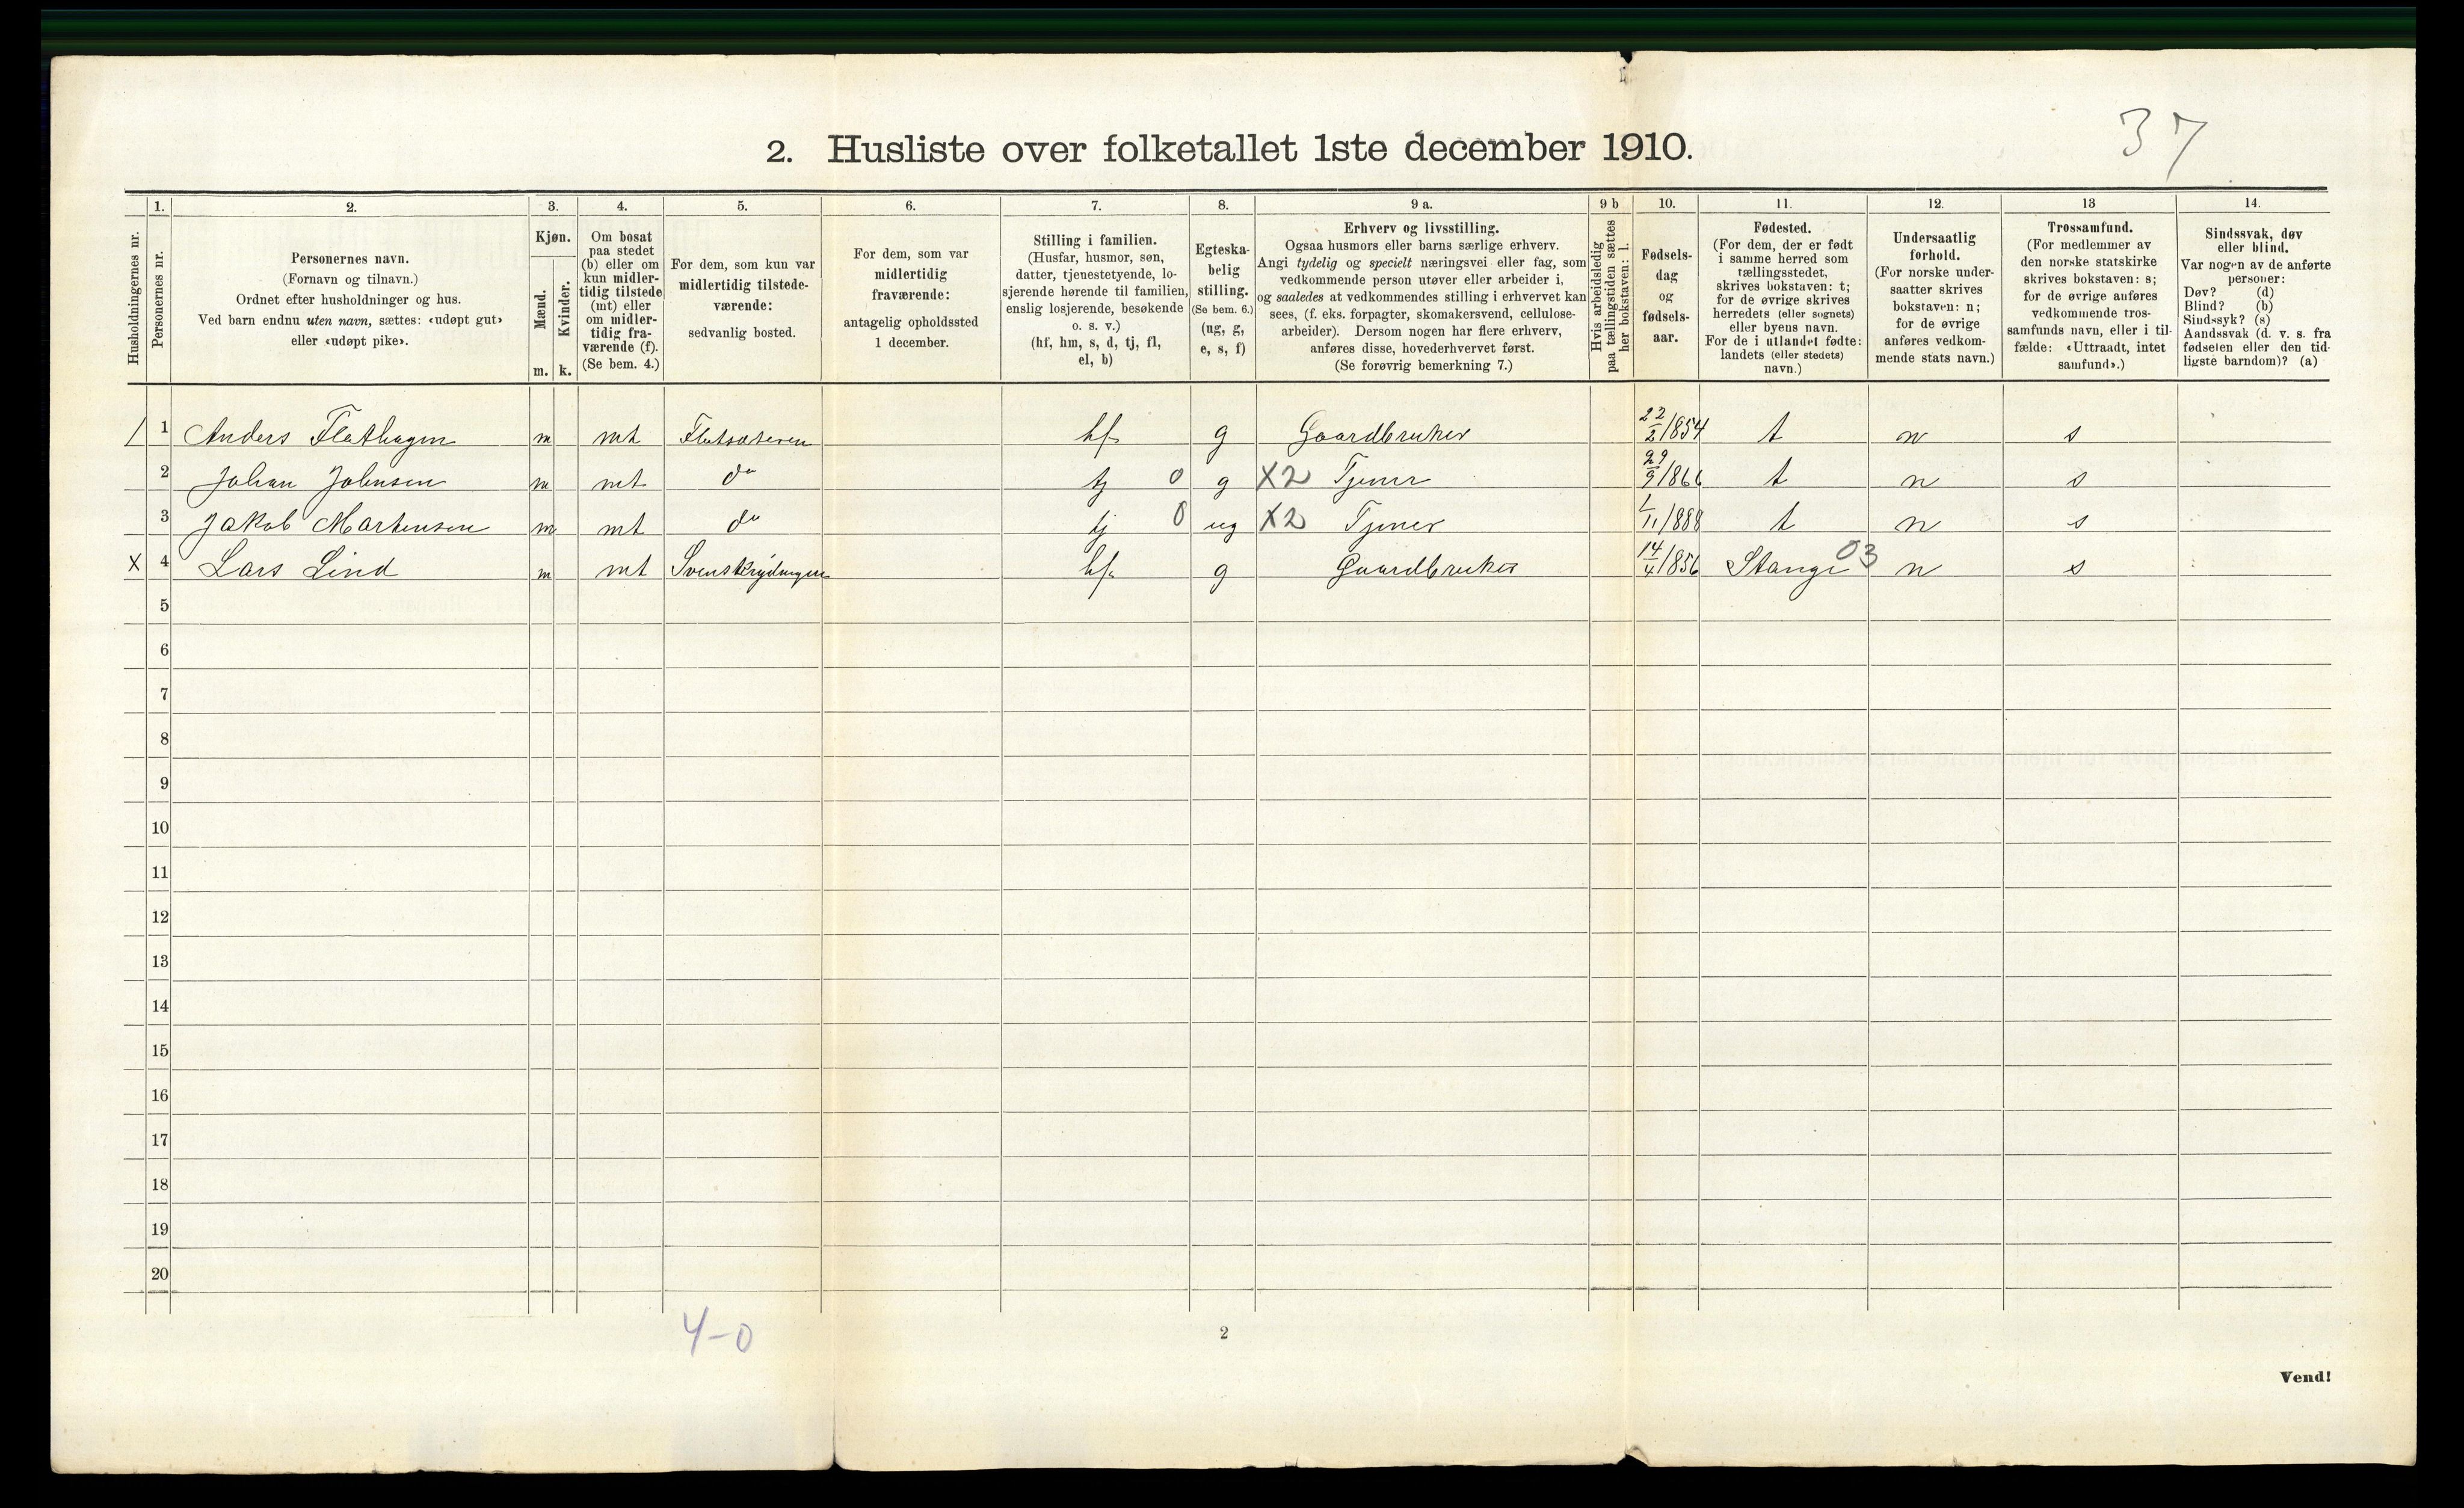 37
2. Husliste over folketallet 1ste december 1910.
Husholdningernes nr.
1.
Personernes nr.
2.
Personernes navn.
(Fornavn og tilnavn.)
Ordnet efter husholdninger og hus.
Ved barn endnu uten navn, sættes: «udøpt gut»
eller «udøpt pike».
3.
Kjøn.
Mænd.
m.
Kvinder.
k.
4.
Om bosat
paa stedet
(b) eller om
kun midler-
tidig tilstede
(mt) eller
om midler-
tidig fra-
værende (f).
(Se bem. 4.)
5.
For dem, som kun var
midlertidig tilstede-
værende:
sedvanlig bosted.
6.
For dem, som var
midlertidig
fraværende:
antagelig opholdssted
1 december.
7.
Stilling i familien.
(Husfar, husmor, søn,
datter, tjenestetyende, lo-
sjerende hørende til familien,
enslig losjerende, besøkende
o. s. v.)
(hf, hm, s, d, tj, fl,
el, b)
8.
Egteska-
belig
stilling.
(Se bem. 6.)
(ug, g,
e, s, f)
9 a.
Erhverv og livsstilling.
Ogsaa husmors eller barns særlige erhverv.
Angi tydelig og specielt næringsvei eller fag, som
vedkommende person utøver eller arbeider i,
og saaledes at vedkommendes stilling i erhvervet kan
sees, (f. eks. forpagter, skomakersvend, cellulose-
arbeider). Dersom nogen har flere erhverv,
anføres disse, hovederhvervet først.
(Se forøvrig bemerkning 7.)
9 b
Hvis arbeidsledig
paa tællingstiden sættes
her bokstaven: l.
10.
Fødsels-
dag
og
fødsels-
aar.
11.
Fødested.
(For dem, der er født
i samme herred som
tællingsstedet,
skrives bokstaven: t;
for de øvrige skrives
herredets (eller sognets)
eller byens navn.
For de i utlandet fødte:
landets (eller stedets)
navn.)
12.
Undersaatlig
forhold.
(For norske under-
saatter skrives
bokstaven: n;
for de øvrige
anføres vedkom-
mende stats navn.)
13
Trossamfund.
(For medlemmer av
den norske statskirke
skrives bokstaven: s;
for de øvrige anføres
vedkommende tros-
samfunds navn, eller i til-
fælde: «Uttraadt, intet
samfund».)
14.
Sindssvak, døv
eller blind.
Var nogen av de anførte
personer:
Døv? (d)
Blind? (b)
Sindssyk? (s)
Aandssvak (d. v. s. fra
fødselen eller den tid-
ligste barndom)? (a)
/ 1 Anders Flathagen m mt Flatsæteren hf g Gaardbruker 22/2 1854 t n s
2 Johan Johnsen m mt do tj 0 g X2 Tjener 29/9 1866 t n s
3 Jakob Martensen m mt do tj 0 ug X2 Tjener 1/11 1888 t n s
X 4 Lars Lind m mt hf g Gaardbruker 14/4 1856 Stange 03 n s
5
6
7
8
9
10
11
12
13
14
15
16
17
18
19
20
4-0
2
Vend!